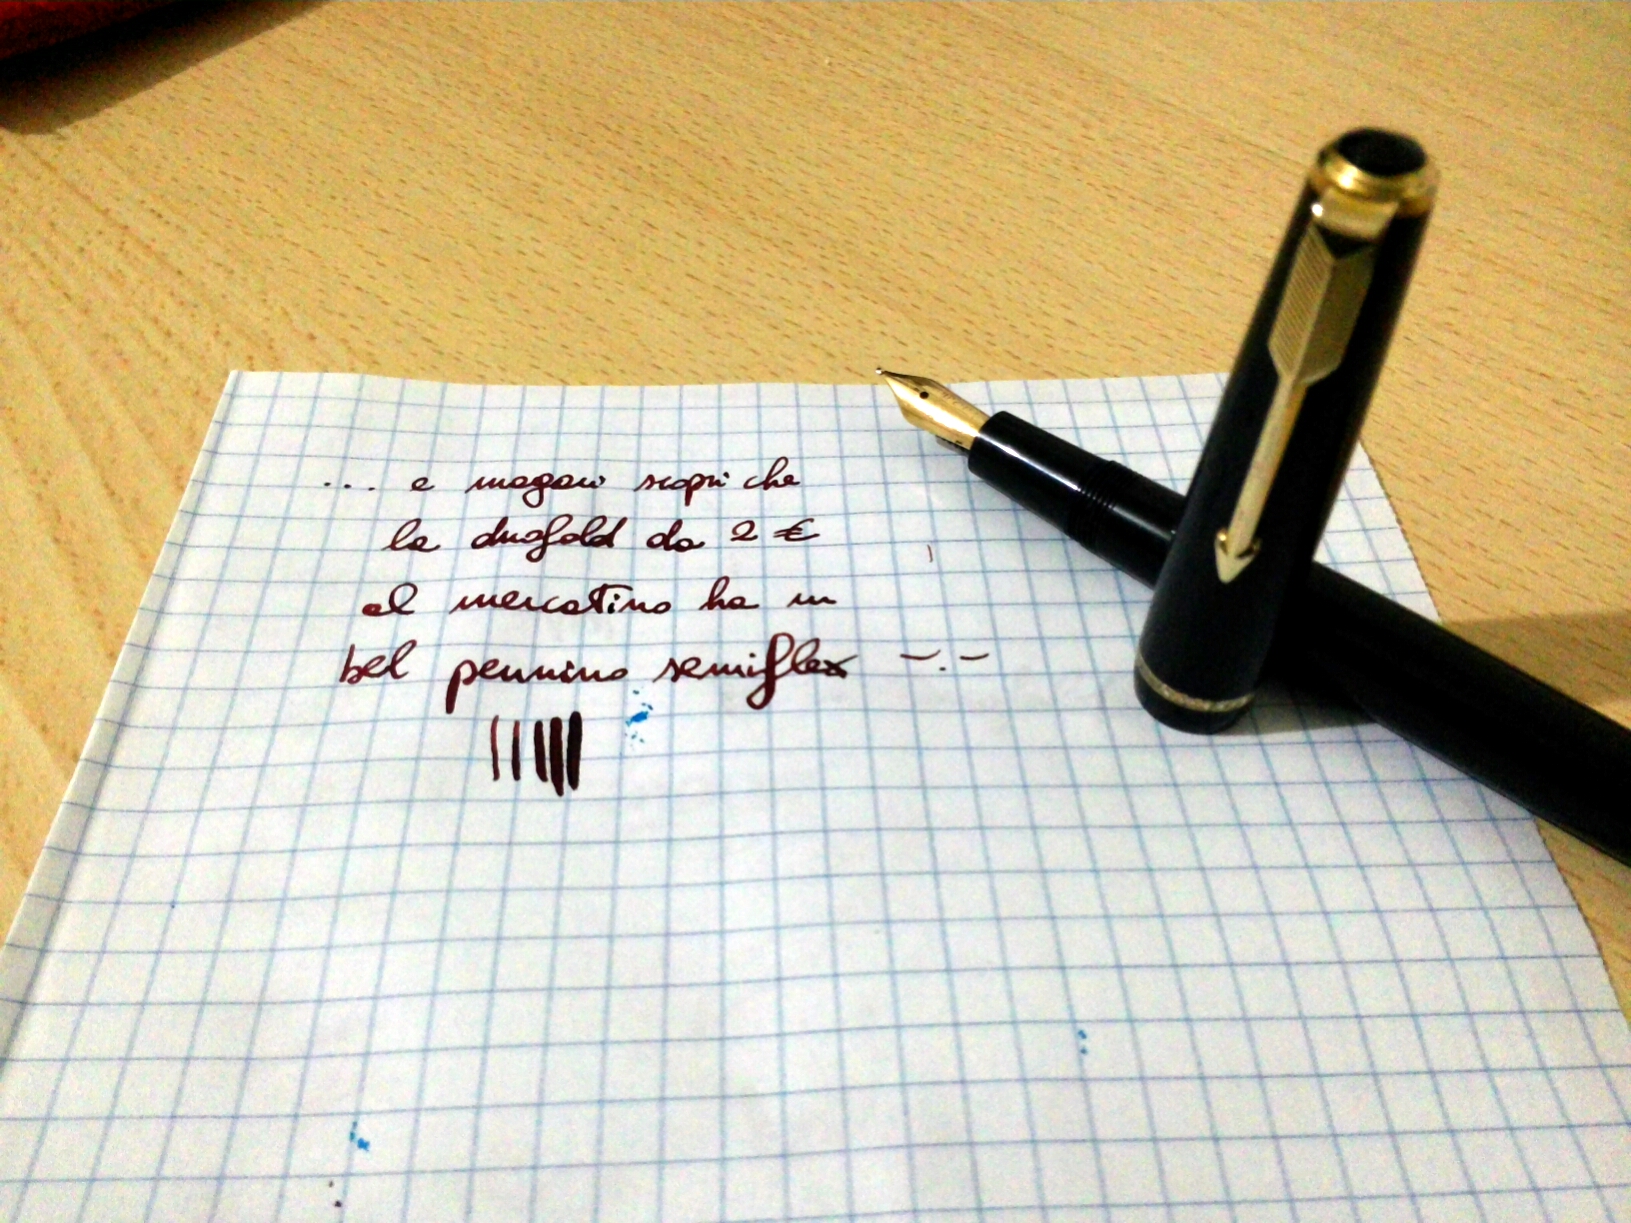 ... e magari scopri che
la duofold da 2 €
al mercatino ha un
bel pennino semiflex -.-